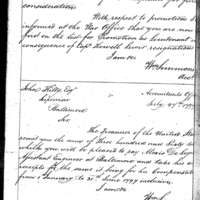 consideration.
With respect to promotion I
informed at the War Office that you are now
first on the list for Promotion as Lieutenant in
consequence of Capt Howell Lewis's resignation
I am &c
Wm Simmons
Acct
John Hills Esqr
Accountants Of
Superior
July 27th 179
Baltimore
Sir
The Treasurer of the United Stat
remit you the sum of Three hundred
which you will be pleased to pay
Assistant Engineer at Baltimore and take his
receipt for the same it being for his compensation
from 1 January to 30th July 1794 inclusive.
I am &c